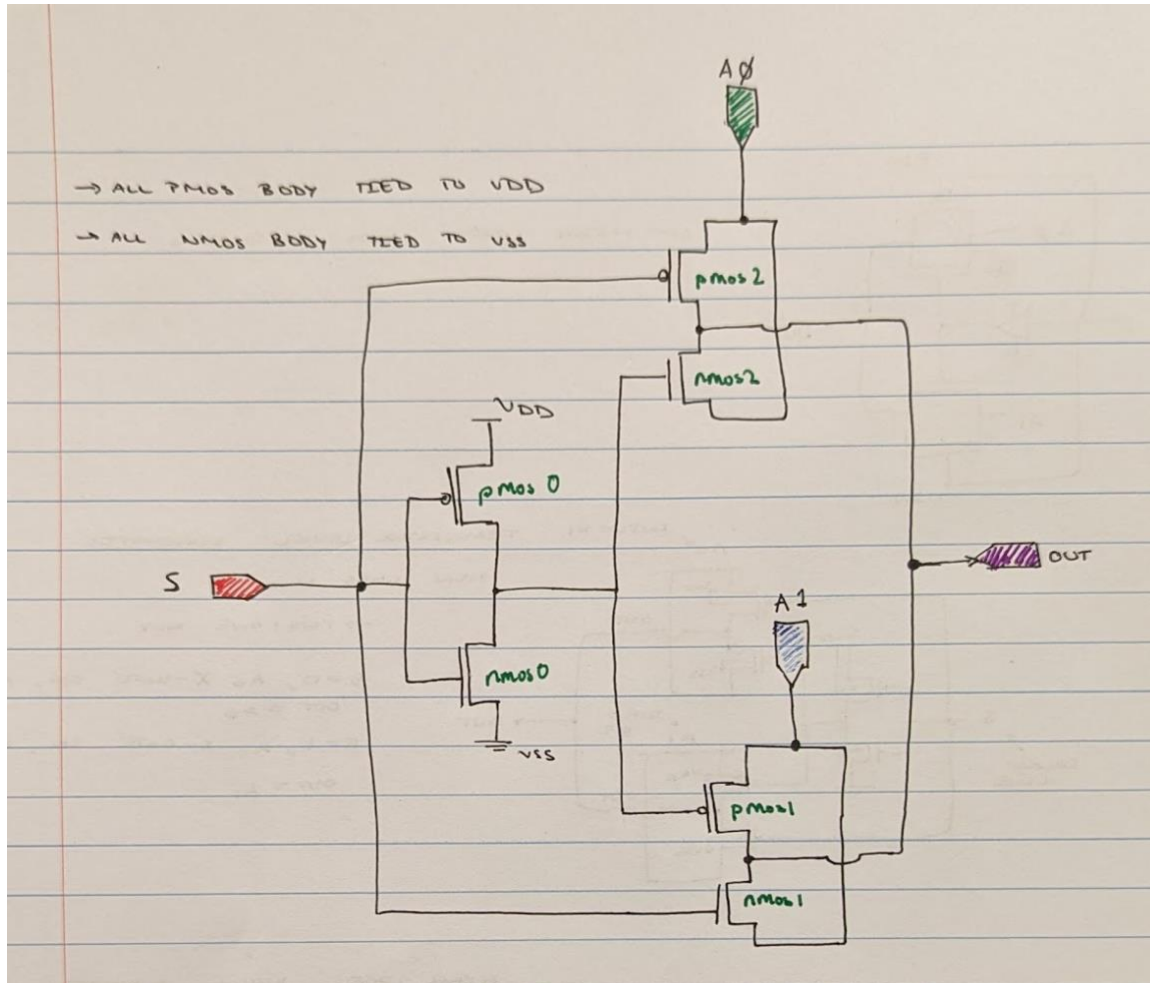 AØ
→ ALL PMOS BODY TIED TO VDD
→ ALL NMOS BODY TIED TO VSS
pmos2
nmos2
VDD
pmos 0
S
OUT
A1
nmos0
VSS
pmos1
nmos1